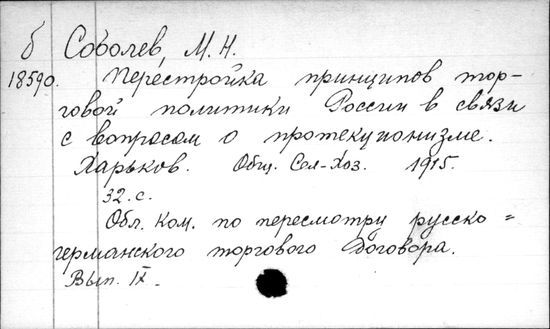 б Соболев, М. Н.
18590. Перестройка принципов тор-
говой политики России в связи
с вопросом о протекционизме.
Харьков. Общ. Сел-Хоз. 1915.
32. с.
Обл. Ком. по пересмотру русско=
германского торгового договора.
Вып. IX.